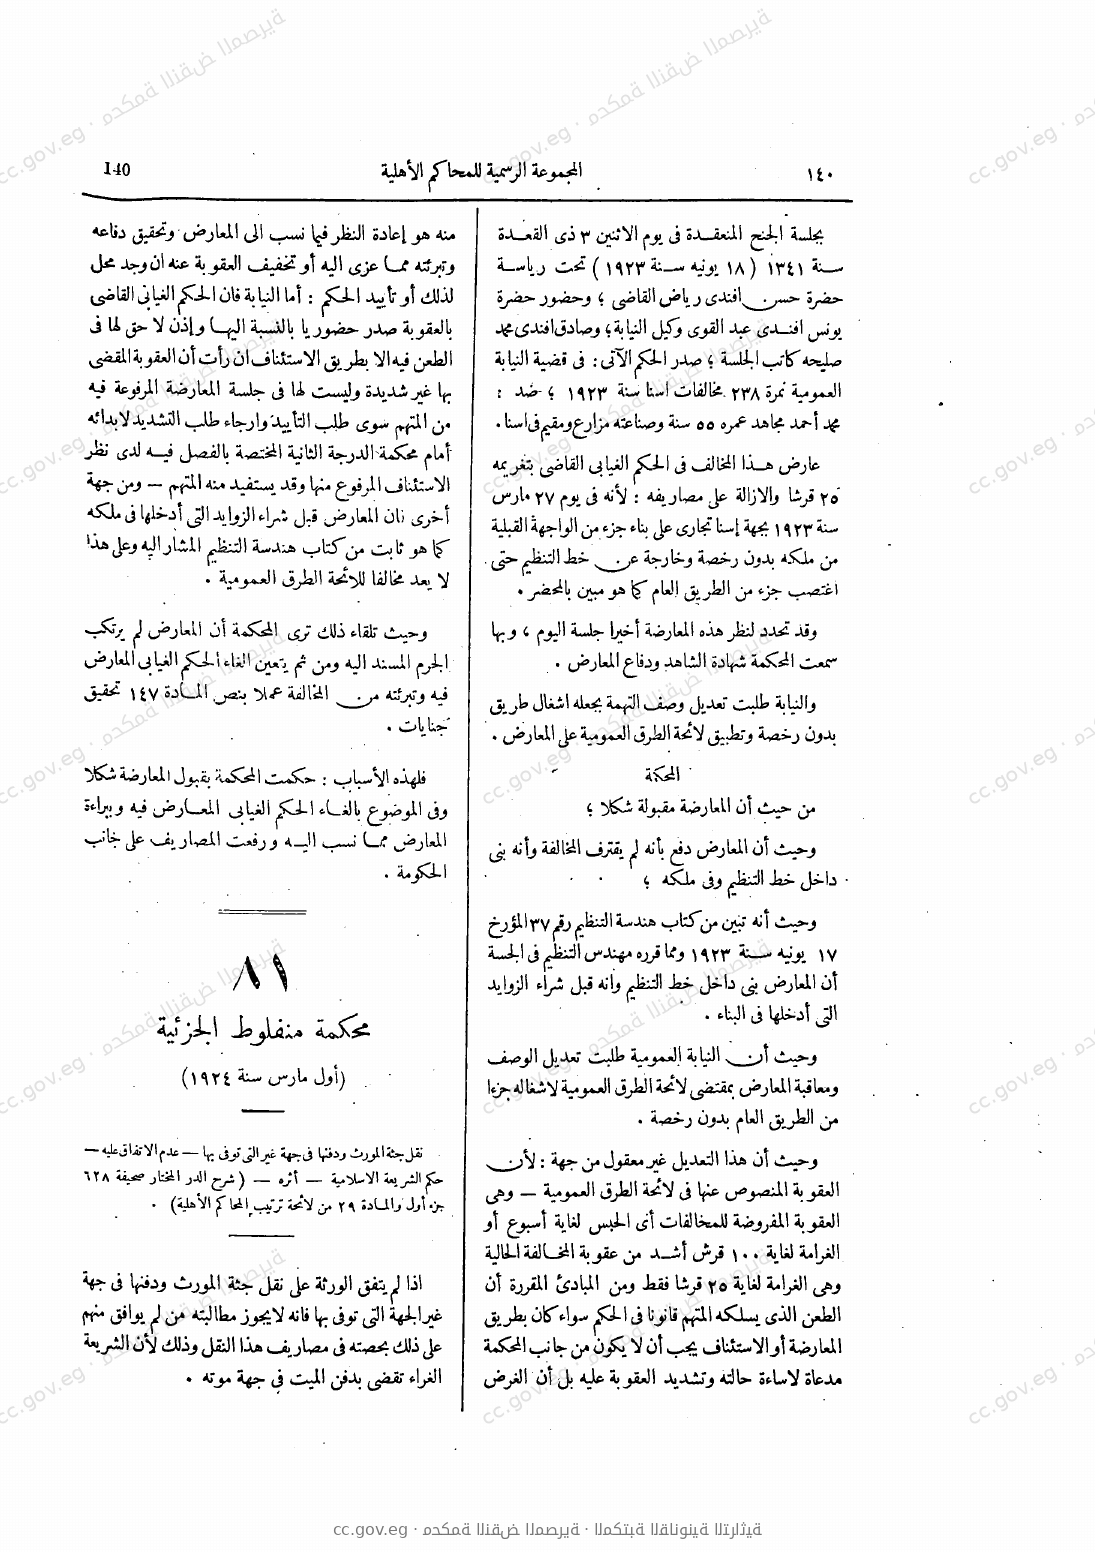 ١٤٠
المجموعة الرسمية للمحاكم الأهلية
140
بجلسة الجنح المنعقدة فى يوم الاثنين ٣ ذى القعدة
سنة ١٣٤١ (١٨ يونيه سنة ١٩٢٣) تحت رياسة
حضرة حسن افندى رياض القاضى ؛ وحضور حضرة
يونس افندى عبد القوى وكيل النيابة ؛ وصادق افندى محمد
صليحه كاتب الجلسة ؛ صدر الحكم الآتى : فى قضية النيابة
العمومية نمرة ٢٣٨ مخالفات اسنا سنة ١٩٢٣ ؛ ضد :
محمد أحمد مجاهد عمره ٥٥ سنة وصناعته مزارع ومقيم فى اسنا .
عارض هذا المخالف فى الحكم الغيابى القاضى بتغريمه
٢٥ قرشا والازالة على مصاريفه : لأنه فى يوم ٢٧ مارس
سنة ١٩٢٣ بجهة إسنا تجارى على بناء جزء من الواجهة القبلية
من ملكه بدون رخصة وخارجة عن خط التنظيم حتى
اغتصب جزء من الطريق العام كما هو مبين بالمحضر .
وقد تحدد لنظر هذه المعارضة أخيرا جلسة اليوم ، وبها
سمعت المحكمة شهادة الشاهد ودفاع المعارض .
والنيابة طلبت تعديل وصف التهمة بجعله اشغال طريق
بدون رخصة وتطبيق لائحة الطرق العمومية على المعارض .
المحكمة
من حيث أن المعارضة مقبولة شكلا ؛
وحيث أن المعارض دفع بأنه لم يقترف المخالفة وأنه بنى
داخل خط التنظيم وفى ملكه ؛
وحيث أنه تبين من كتاب هندسة التنظيم رقم ٣٧ المؤرخ
١٧ يونيه سنة ١٩٢٣ ومما قرره مهندس التنظيم فى الجلسة
أن المعارض بنى داخل خط التنظيم وانه قبل شراء الزوايد
التى أدخلها فى البناء .
وحيث أن النيابة العمومية طلبت تعديل الوصف
ومعاقبة المعارض بمقتضى لائحة الطرق العمومية لاشغاله جزءا
من الطريق العام بدون رخصة .
وحيث أن هذا التعديل غير معقول من جهة : لأن
العقوبة المنصوص عنها فى لائحة الطرق العمومية — وهى
العقوبة المفروضة للمخالفات أى الحبس لغاية أسبوع أو
الغرامة لغاية ١٠٠ قرش أشد من عقوبة المخالفة الحالية
وهى الغرامة لغاية ٢٥ قرشا فقط ومن المبادئ المقررة أن
الطعن الذى يسلكه المتهم قانونا فى الحكم سواء كان بطريق
المعارضة أو الاستئناف يجب أن لا يكون من جانب المحكمة
مدعاة لاساءة حالته وتشديد العقوبة عليه بل أن الغرض
منه هو إعادة النظر فيما نسب الى المعارض وتحقيق دفاعه
وتبرئته مما عزى اليه أو تخفيف العقوبة عنه ان وجد محل
لذلك أو تأييد الحكم : أما النيابة فان الحكم الغيابى القاضى
بالعقوبة صدر حضوريا بالنسبة اليها وإذن لا حق لها فى
الطعن فيه الا بطريق الاستئناف ان رأت أن العقوبة المقضى
بها غير شديدة وليست لها فى جلسة المعارضة المرفوعة فيه
من المتهم سوى طلب التأييد وارجاء طلب التشديد لابدائه
أمام محكمة الدرجة الثانية المختصة بالفصل فيه لدى نظر
الاستئناف المرفوع منها وقد يستفيد منه المتهم — ومن جهة
أخرى فان المعارض قبل شراء الزوايد التى أدخلها فى ملكه
كما هو ثابت من كتاب هندسة التنظيم المشار اليه وعلى هذا
لا يعد مخالفا للائحة الطرق العمومية .
وحيث تلقاء ذلك ترى المحكمة أن المعارض لم يرتكب
الجرم المسند اليه ومن ثم يتعين الغاء الحكم الغيابى المعارض
فيه وتبرئته من المخالفة عملا بنص المادة ١٤٧ تحقيق
جنايات .
فلهذه الأسباب : حكمت المحكمة بقبول المعارضة شكلا
وفى الموضوع بالغاء الحكم الغيابى المعارض فيه وبراءة
المعارض مما نسب اليه ورفعت المصاريف على جانب
الحكومة .
٨١
محكمة منفلوط الجزئية
(أول مارس سنة ١٩٢٤)
نقل جثة المورث ودفنها فى جهة غير التى توفى بها — عدم الاتفاق عليه —
حكم الشريعة الاسلامية — أثره — (شرح الدر المختار صحيفة ٦٢٨
جزء أول والمادة ٢٩ من لائحة ترتيب المحاكم الأهلية) .
اذا لم يتفق الورثة على نقل جثة المورث ودفنها فى جهة
غير الجهة التى توفى بها فانه لا يجوز مطالبته من لم يوافق منهم
على ذلك بحصته فى مصاريف هذا النقل وذلك لأن الشريعة
الغراء تقضى بدفن الميت فى جهة موته .
cc.gov.eg · محكمة النقض المصرية · المكتبة القانونية التراثية